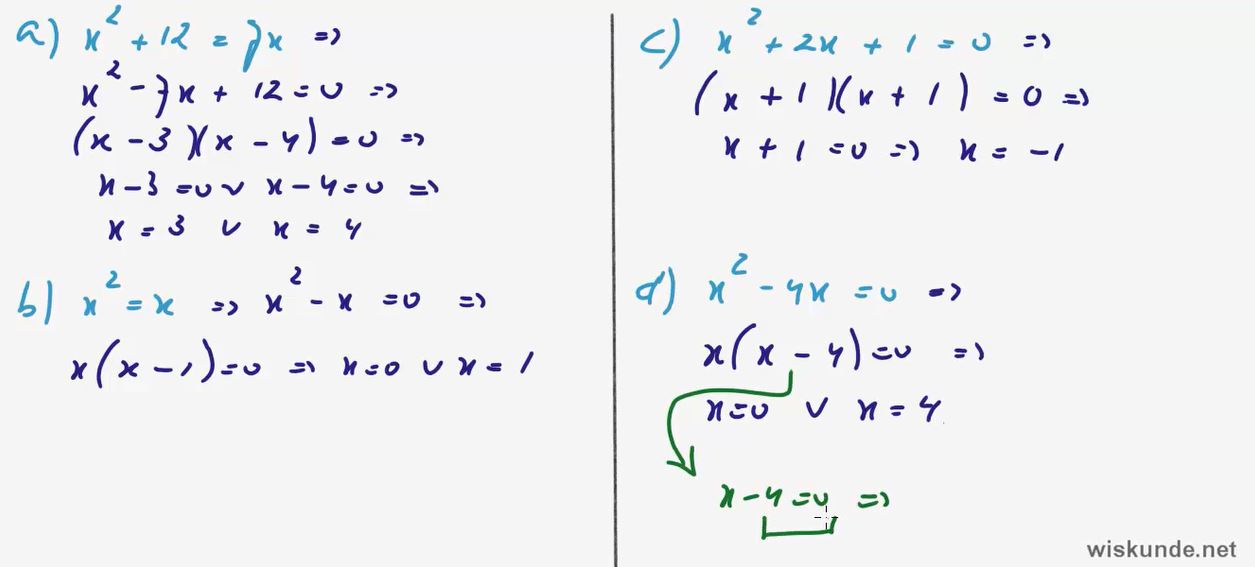 a) x² + 12 = 7x =>
x² - 7x + 12 = 0 =>
(x - 3)(x - 4) = 0 =>
x - 3 = 0 ∨ x - 4 = 0 =>
x = 3 ∨ x = 4
b) x² = x => x² - x = 0 =>
x(x - 1) = 0 => x = 0 ∨ x = 1
c) x² + 2x + 1 = 0 =>
(x + 1)(x + 1) = 0 =>
x + 1 = 0 => x = -1
d) x² - 4x = 0 =>
x(x - 4) = 0 =>
x = 0 ∨ x = 4
x - 4 = 0 =>
wiskunde.net